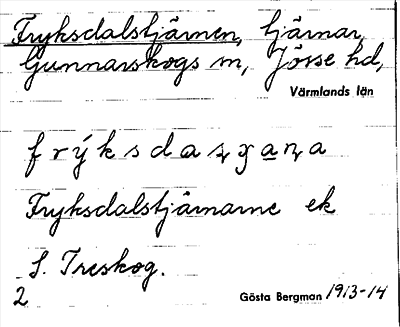 Fryksdalstjärnen, tjärnar,
Gunnarskogs sn, Jösse hd,
Värmlands län
Fryksdalstjärnarne ek
S. Treskog.
2
Gösta Bergman 1913-14